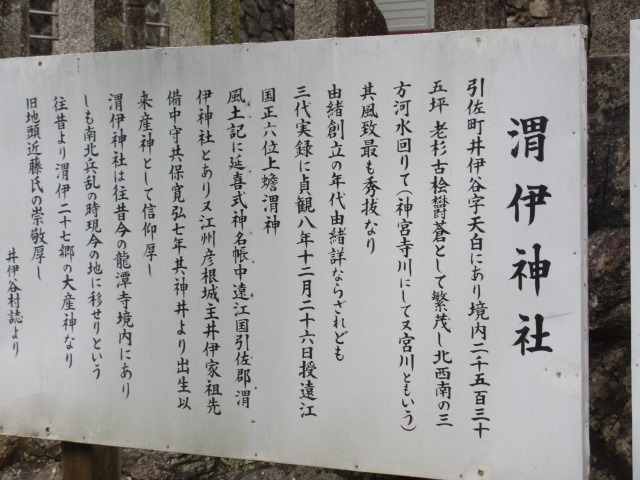 渭伊神社
引佐町井伊谷字天白にあり境内二千五百三十
五坪 老杉古桧欝蒼として繁茂し北西南の三
方河水回りて(神宮寺川にして又宮川ともいう)
其風致最も秀抜なり
由緒創立の年代由緒詳ならざれども
三代実録に貞観八年十二月二十六日授遠江
国正六位上蟾渭神
風土記に延喜式神名帳中遠江国引佐郡渭
伊神社とあり又江州彦根城主井伊家祖先
備中守共保寛弘七年其神井より出生以
来産神として信仰厚し
渭伊神社は往昔今の龍潭寺境内にあり
しも南北兵乱の時現今の地に移せりという
往昔より渭伊二十七郷の大産神なり
旧地頭近藤氏の崇敬厚し
井伊谷村誌より